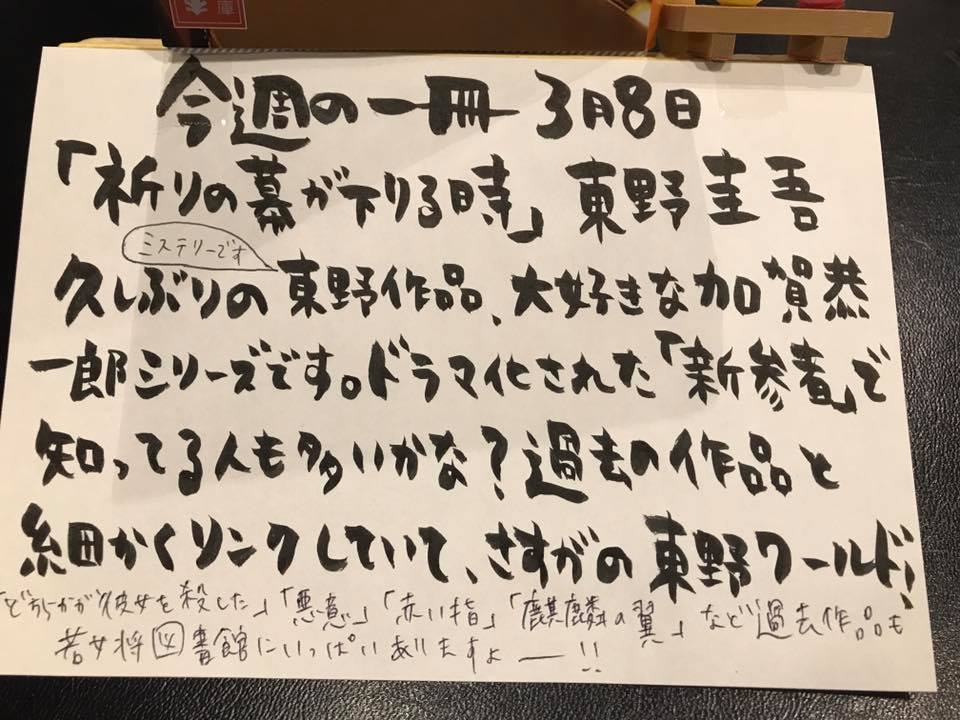 庫
今週の一冊 3月8日
「祈りの幕が下りる時」 東野圭吾
ミステリーです
久しぶりの東野作品、大好きな加賀恭
一郎シリーズです。ドラマ化された「新参者」で
知ってる人も多いかな？過去の作品と
細かくリンクしていて、さすがの東野ワールド!
「どちらかが彼女を殺した」「悪意」「赤い指」「麒麟の翼」など過去作品も
若女将図書館にいっぱいありますよー!!